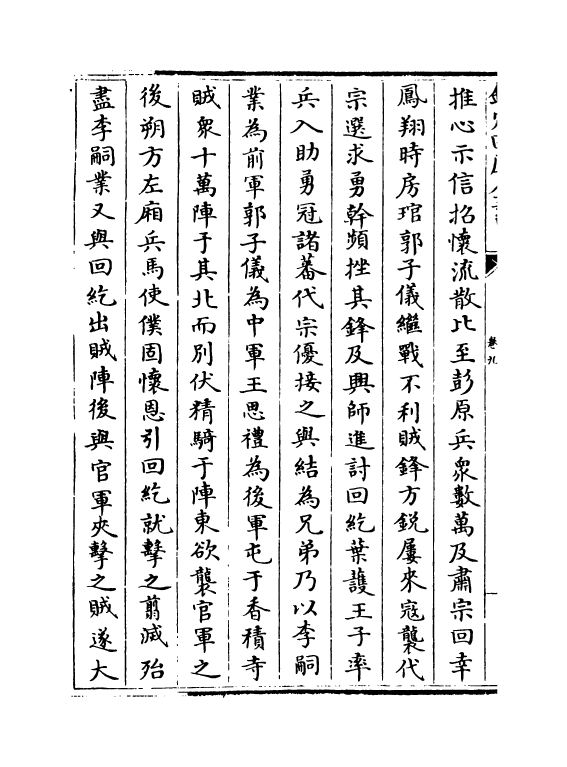 欽定四庫全書
卷九
推心示信招懷流散比至彭原兵衆數萬及肅宗回幸
鳳翔時房琯郭子儀繼戰不利賊鋒方鋭屢來寇襲代
宗選求勇幹頻挫其鋒及興師進討回紇葉護王子率
兵入助勇冠諸蕃代宗優接之與結為兄弟乃以李嗣
業為前軍郭子儀為中軍王思禮為後軍屯于香積寺
賊衆十萬陣于其北而別伏精騎于陣東欲襲官軍之
後朔方左廂兵馬使僕固懷恩引回紇就擊之翦滅殆
盡李嗣業又與回紇出賊陣後與官軍夾擊之賊遂大